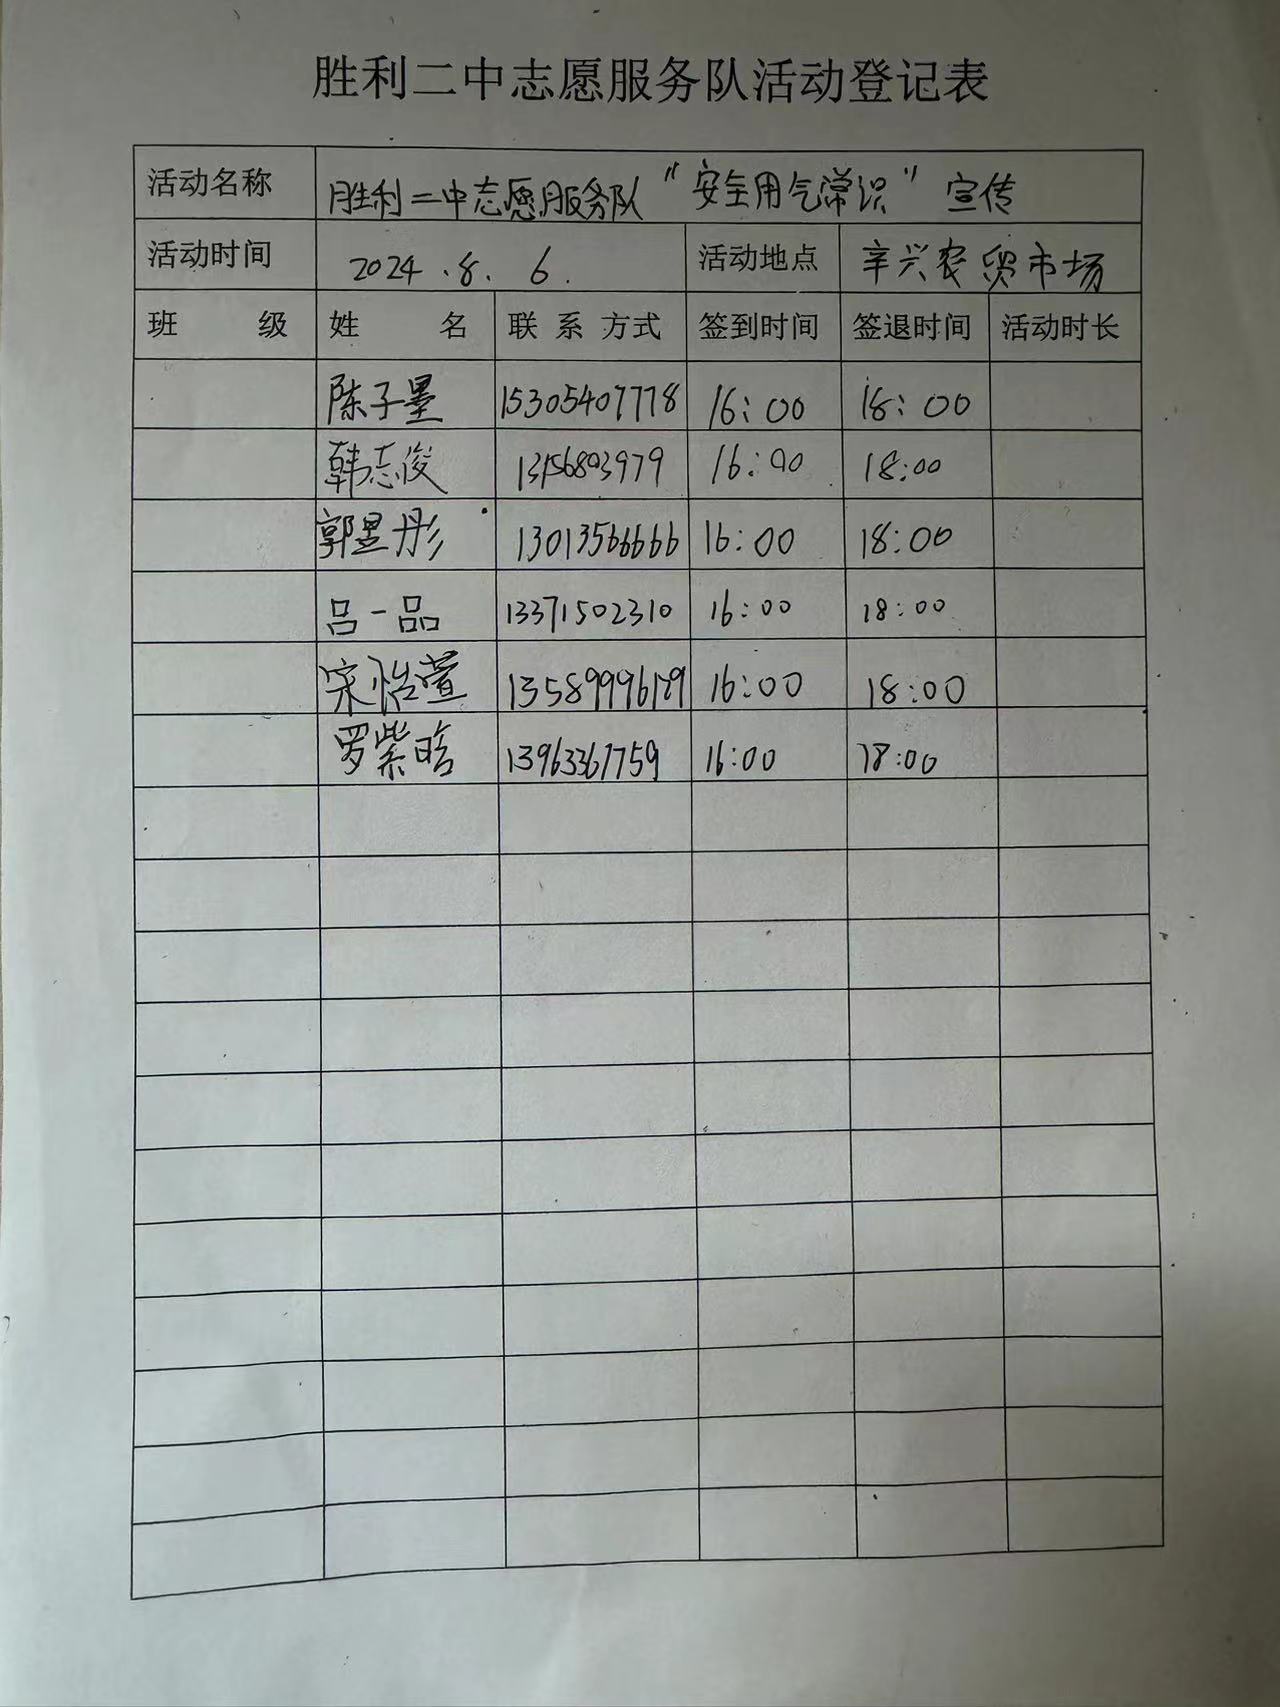 胜利二中志愿服务队活动登记表
活动名称 胜利二中志愿服务队“安全用气常识”宣传
活动时间 2024.8.6. 活动地点 辛兴农贸市场
班 级 姓 名 联系方式 签到时间 签退时间 活动时长
陈子墨 15305407778 16:00 18:00
韩志俊 13156803979 16:00 18:00
郭昱彤 13013566666 16:00 18:00
吕一品 13371502310 16:00 18:00
宋怡萱 16:00 18:00
罗紫晗 13963367759 16:00 18:00